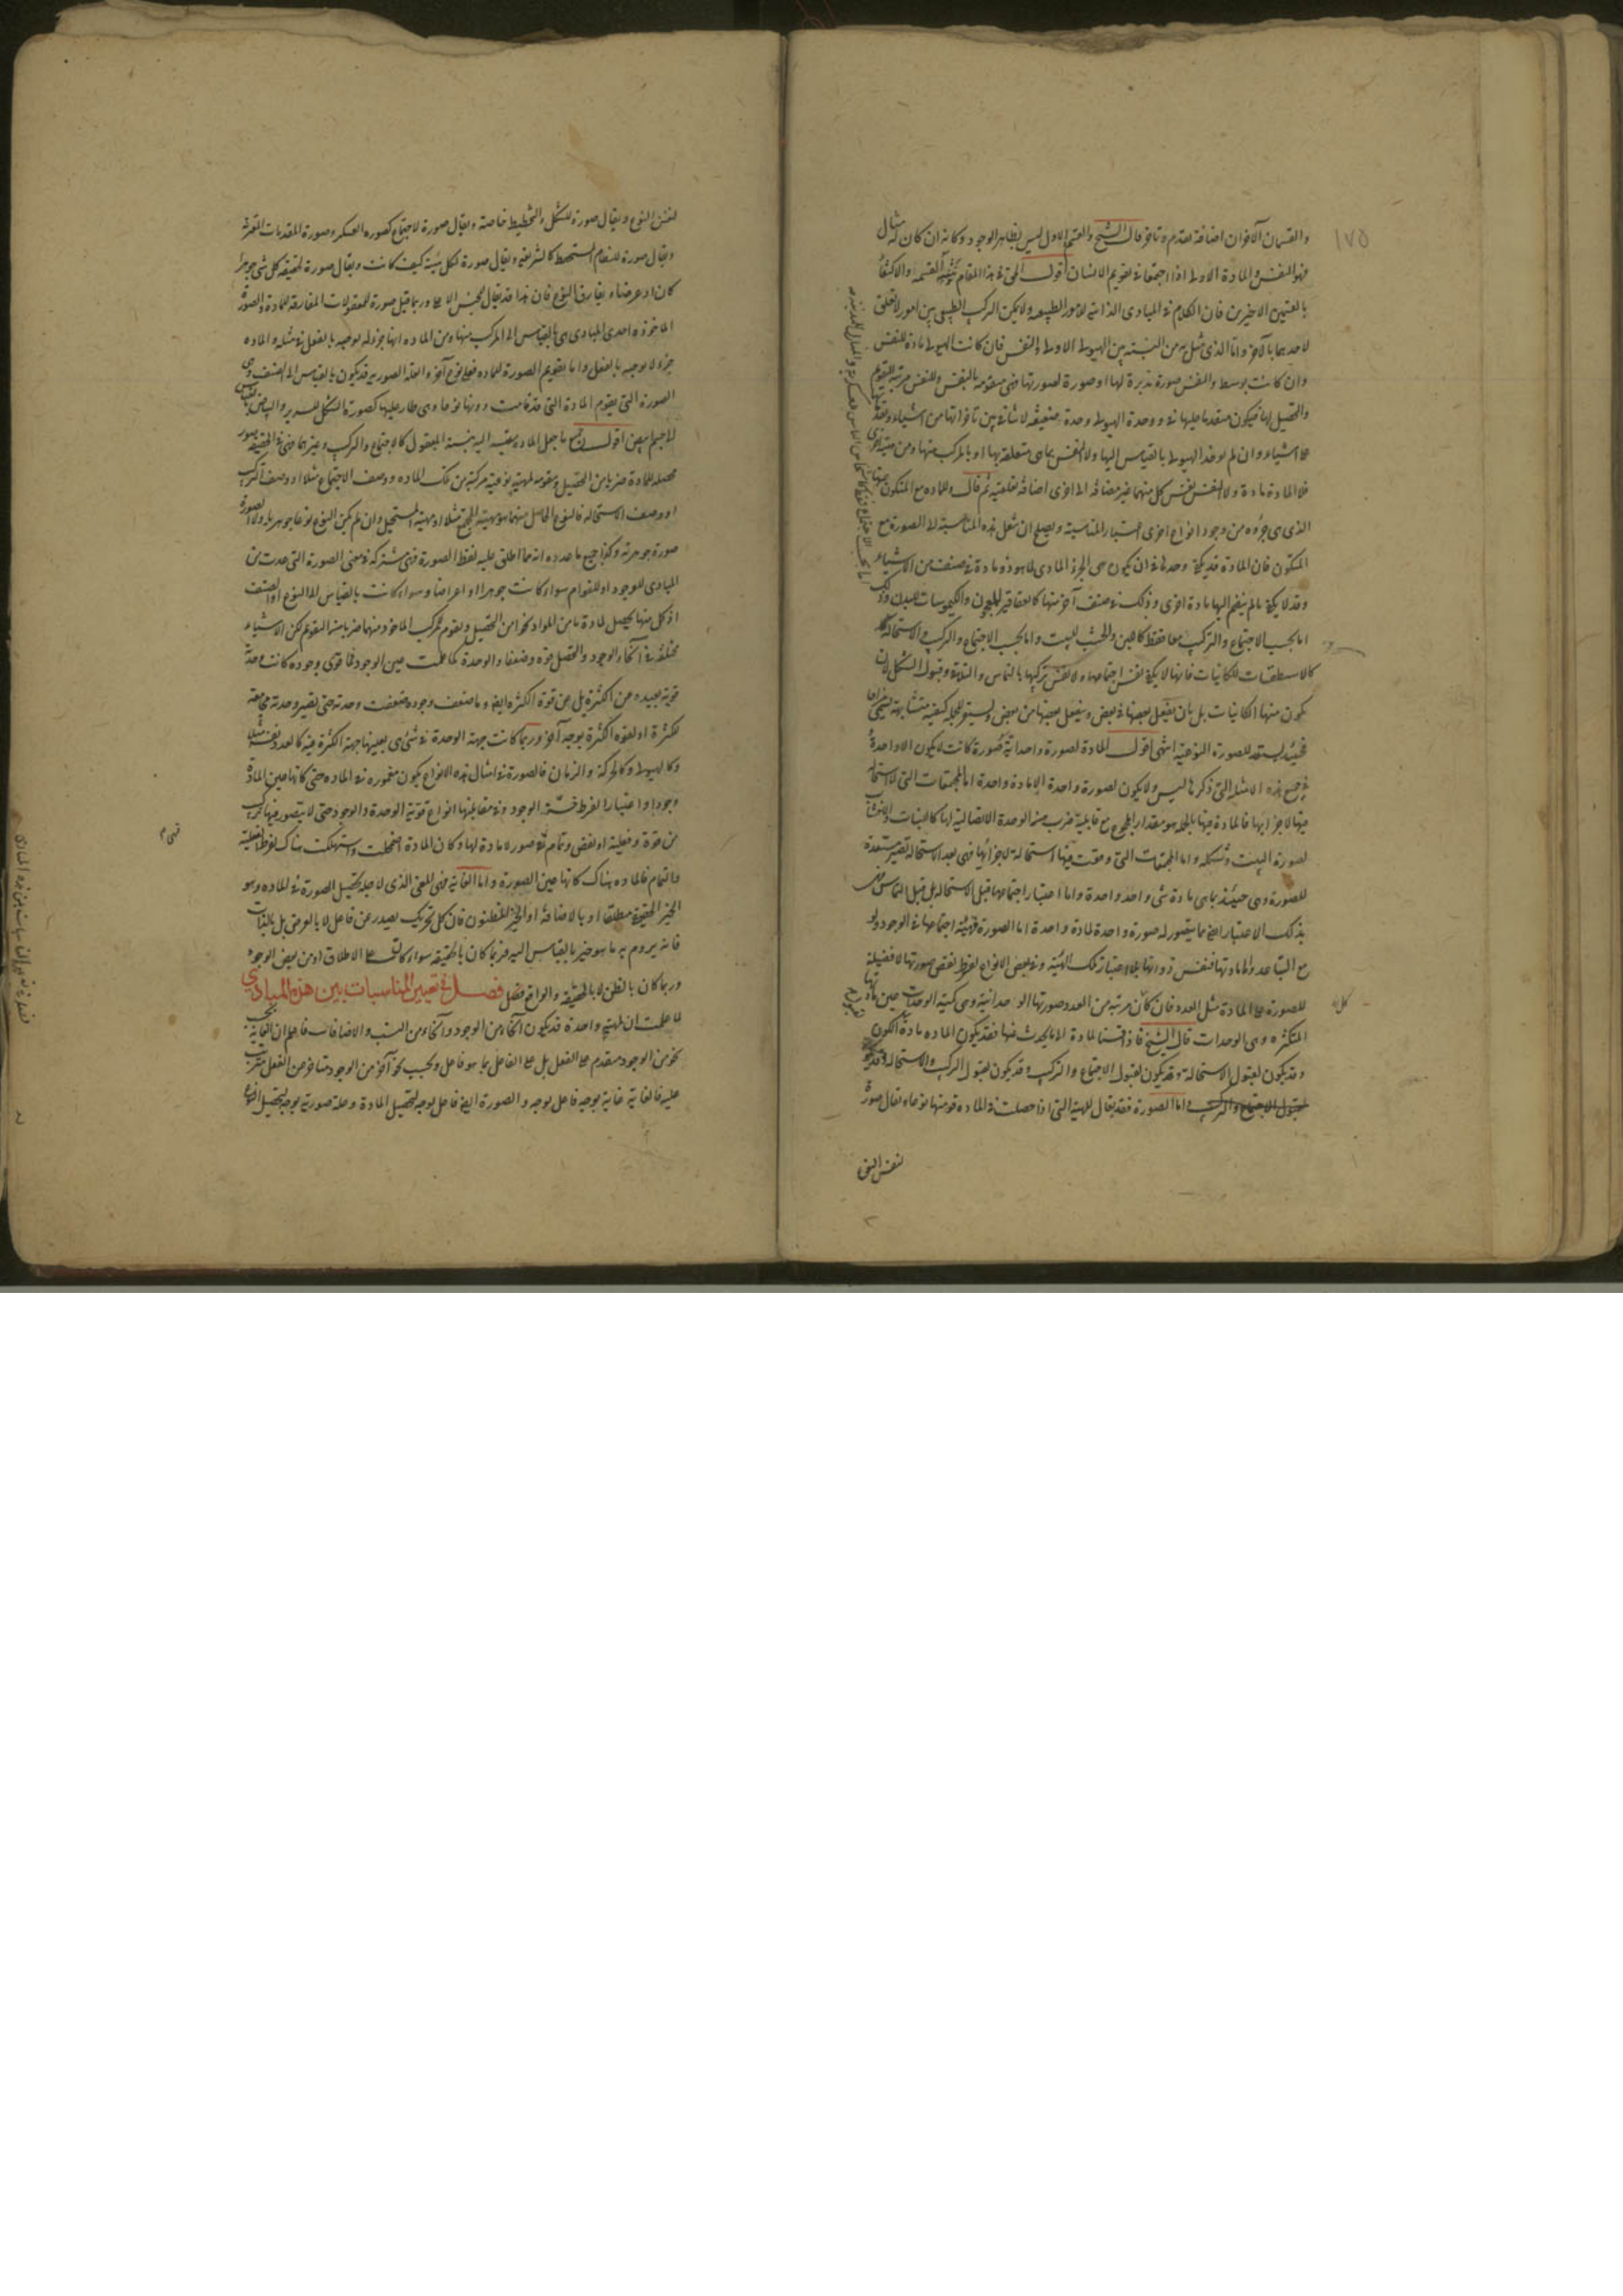 ١٧٥
والقسمان الآخران اضافة تقدم وتاخر قال الشيخ والقسم الاول ليس بظاهر الوجود وكانه ان كان له مثال
فهو النفس والمادة الاولى اذا اجتمعا في تقويم الانسان اقول الحق في هذا المقام القسمة والاكتفاء
بالقسمين الاخيرين فان الكلام في المبادي الذاتية للامور الطبيعية ولا يمكن التركيب الطبيعي بين امور لا تعلق
لاحدهما بالآخر واما الذي مثل به من النسبة بين الهيولى الاولى والنفس فان كانت الهيولى مادة للنفس
وان كانت بوسط والنفس صورة مدبرة لها او صورة لصورتها فهي متقومة بالنفس وللنفس مرتبة التقويم
والتحصيل لها فيكون متقدما عليها في ووحدة الهيولى وحدة ضعيفة لا منافاة بين تاخرها من اشياء وتقدمها
على اشياء وان لم يوخذ الهيولى بالقياس اليها ولا النفس بما هي متعلقة بها او بالمركب منها ومن
فلا المادة مادة ولا النفس نفس كل منهما غير مضافة الى اخرى اضافة ثم قال وللمادة مع المتكون
الذي هي جزؤه من وجود انواع اخرى باعتبار المناسبة ويصلح ان تنقل هذه المناسبة الى الصورة مع
المتكون فان المادة قد يكفي وحدها في ان يكون هي الجزء المادي لما هو ذو مادة في صنف من الاشياء
وقد لا يكفي ما لم ينضم اليها مادة اخرى وذلك في صنف آخر منها كالعقاقير للمعجون والكيموسات للبدن وذلك
اما بحسب الاجتماع والتركيب معا فقط كاللبن والخشب للبيت واما بحسب الاجتماع والتركيب والاستحالة
كالاسطقسات للكائنات فانها لا يكفي نفس اجتماعها ولا نفس تركيبها بالتماس والتلاقي وقبول الشكل لان
يكون منها الكائنات بل بان يفعل بعضها في بعض وينفعل بعضها من بعض ويستقر للجملة كيفية متشابهة يسمى مزاجا
فحينئذ يستعد للصورة النوعية انتهى اقول المادة لصورة وحدانية صورة كانت لا يكون الا واحدة
في جميع هذه الامثلة التي ذكرها ليس ولا يكون لصورة واحدة الا مادة واحدة اما المجتمعات التي لا استحالة
فيها لاجزائها فالمادة فيها بالجملة هو مقدار المجموع مع قابلية ضرب من الوحدة الاتصالية لها كاللبنات والاخشاب
لصورة البيت وشكله واما المجتمعات التي وقعت فيها استحالة لاجزائها فهي بعد الاستحالة تصير مستعدة
للصورة وهي حينئذ بما هي مادة شيء واحد واحدة واما اعتبار اجتماعها قبل الاستحالة بل قبل التماس
بذلك الاعتبار ايضا مما يتصور له صورة واحدة لمادة واحدة اما الصورة فهيئة اجتماعها في الوجود ولو
مع التباعد واما مادتها فنفس ذواتها بلا اعتبار تلك الهيئة وفي بعض الانواع لفرط نقص صورتها لا فضيلة
للصورة على المادة مثل العدد فان كل مرتبة من العدد صورتها الوحدانية وهي كمية الوحدات عين مادتها
المتكثرة وهي الوحدات قال الشيخ فاذا قسمنا المادة الى ما يحدث عنها فقد يكون المادة مادة للكون
وقد يكون لقبول الاستحالة وقد يكون لقبول الاجتماع والتركيب وقد يكون لقبول التركيب والاستحالة
واما الصورة فقد يقال للهيئة التي اذا حصلت في المادة قومتها نوعا ويقال صورة
لنفس النوع
لنفس النوع ويقال صورة للشكل والتخطيط خاصة ويقال صورة لاجتماع كصورة العسكر وصورة المقدمات المقترنة
ويقال صورة للنظام المستحفظ كالشريعة ويقال صورة لكل هيئة كيف كانت ويقال صورة لحقيقة كل شيء جوهرا
كان او عرضا ويفارق النوع فان هذا قد يقال للجنس الاعلى وربما قيل صورة للمعقولات المفارقة للمادة والصورة
الماخوذة احدى المبادي هي بالقياس الى المركب منها ومن المادة انها جزء له يوجبه بالفعل في مثله والمادة
جزء لا يوجبه بالفعل واما تقويم الصورة للمادة فعلى نوع آخر والعلة الصورية قد يكون بالقياس الى الصنف وهي
الصورة التي يقوم المادة التي قد قامت دونها نوعا وهي طار عليها كصورة الشكل للسرير والبياض بالقياس
الى جسم ابيض اقول جميع ما جعل المادة معتبرة اليه بنسبة القبول كالاجتماع والتركيب وغيرهما فهي في الحقيقة صور
محصلة للمادة ضربا من التحصيل ومقومة لمهية نوعية مركبة من تلك المادة ووصف الاجتماع مثلا او وصف التركيب
او وصف الاستحالة فالنوع الحاصل منهما هو مهية المجتمع مثلا او مهية المستحيل وان لم يكن النوع نوعا جوهريا ولا الصورة
صورة جوهرية وكذا جميع ما عدده انه مما اطلق عليه لفظ الصورة فهي مشتركة في معنى الصورة التي عدت من
المبادي للوجود او للقوام سواء كانت جوهرا او اعراضا وسواء كانت بالقياس الى النوع او الصنف
اذ كل منها يحصل لمادة ما من المواد نحوا من التحصيل ويقوم لمركب الماخوذ منهما ضربا من التقويم لكن الاشياء
مختلفة في انحاء الوجود والتحصل قوة وضعفا والوحدة كما علمت عين الوجود فما قوي وجوده كانت وحدته
قوية بعيدة عن الكثرة بل عن قوة الكثرة ايضا وما ضعف وجوده ضعفت وحدته حتى تصير وحدته مجامعة
للكثرة او لقوة الكثرة بوجه آخر وربما كانت جهة الوحدة في شيء هي بعينها جهة الكثرة فيه كالعدد نفسه مثلا
وكالهيولى وكالحركة والزمان فالصورة في امثال هذه الانواع يكون مغمورة في المادة حتى كانها عين المادة
وجودا واعتبارا لفرط خسة الوجود وفي مقابلتها انواع قوية الوحدة والوجود حتى لا يتصور فيها تركيب
من قوة وفعلية او نقص وتمام صور لا مادة لها وكان المادة اضمحلت واستهلكت هناك لفرط الفعلية
والتمام فالمادة هناك كانها عين الصورة واما الغاية فهي المعنى الذي لاجله يحصل الصورة في المادة وهو
الخير الحقيقي مطلقا او بالاضافة او الخير المظنون فان كل تحريك يصدر عن فاعل لا بالعرض بل بالذات
فانه يروم به ما هو خير بالقياس اليه فربما كان بالحقيقة سواء كان على الاطلاق او من بعض الوجوه
وربما كان بالظن لا بالحقيقة والواقع فصل فصل في تعيين المناسبات بين هذه المبادي
لما علمت ان لمهية واحدة قد يكون انحاء من الوجود وانحاء من النسب والاضافات فاعلم ان الغاية بحسب
نحو من الوجود متقدم على الفعل بل على الفاعل بما هو فاعل وبحسب نحو آخر من الوجود متاخر عن الفعل مترتب
عليه فالغاية غاية بوجه فاعل بوجه والصورة ايضا فاعل بوجه لتحصيل المادة وعلة صورية بوجه لتحصيل النوع